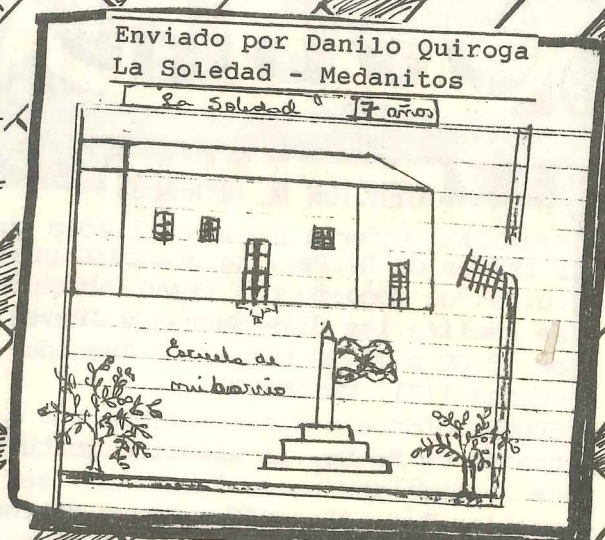 Enviado por Danilo Quiroga
La Soledad - Medanitos
"La Soledad" 7 años
Escuela de
mi barrio